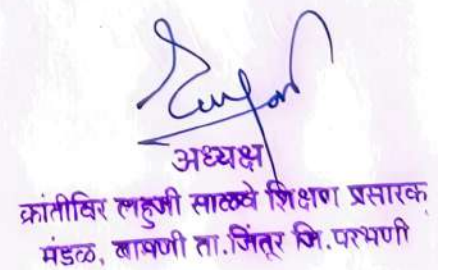 अध्यक्ष
क्रांतीविर लहुजी साळवे शिक्षण प्रसारक
मंडळ, बामणी ता.जिंतूर जि.परभणी